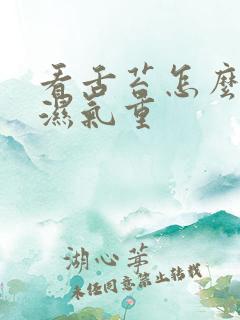 看舌苔怎麼
濕氣重
湖心茅
未任同意禁止转载